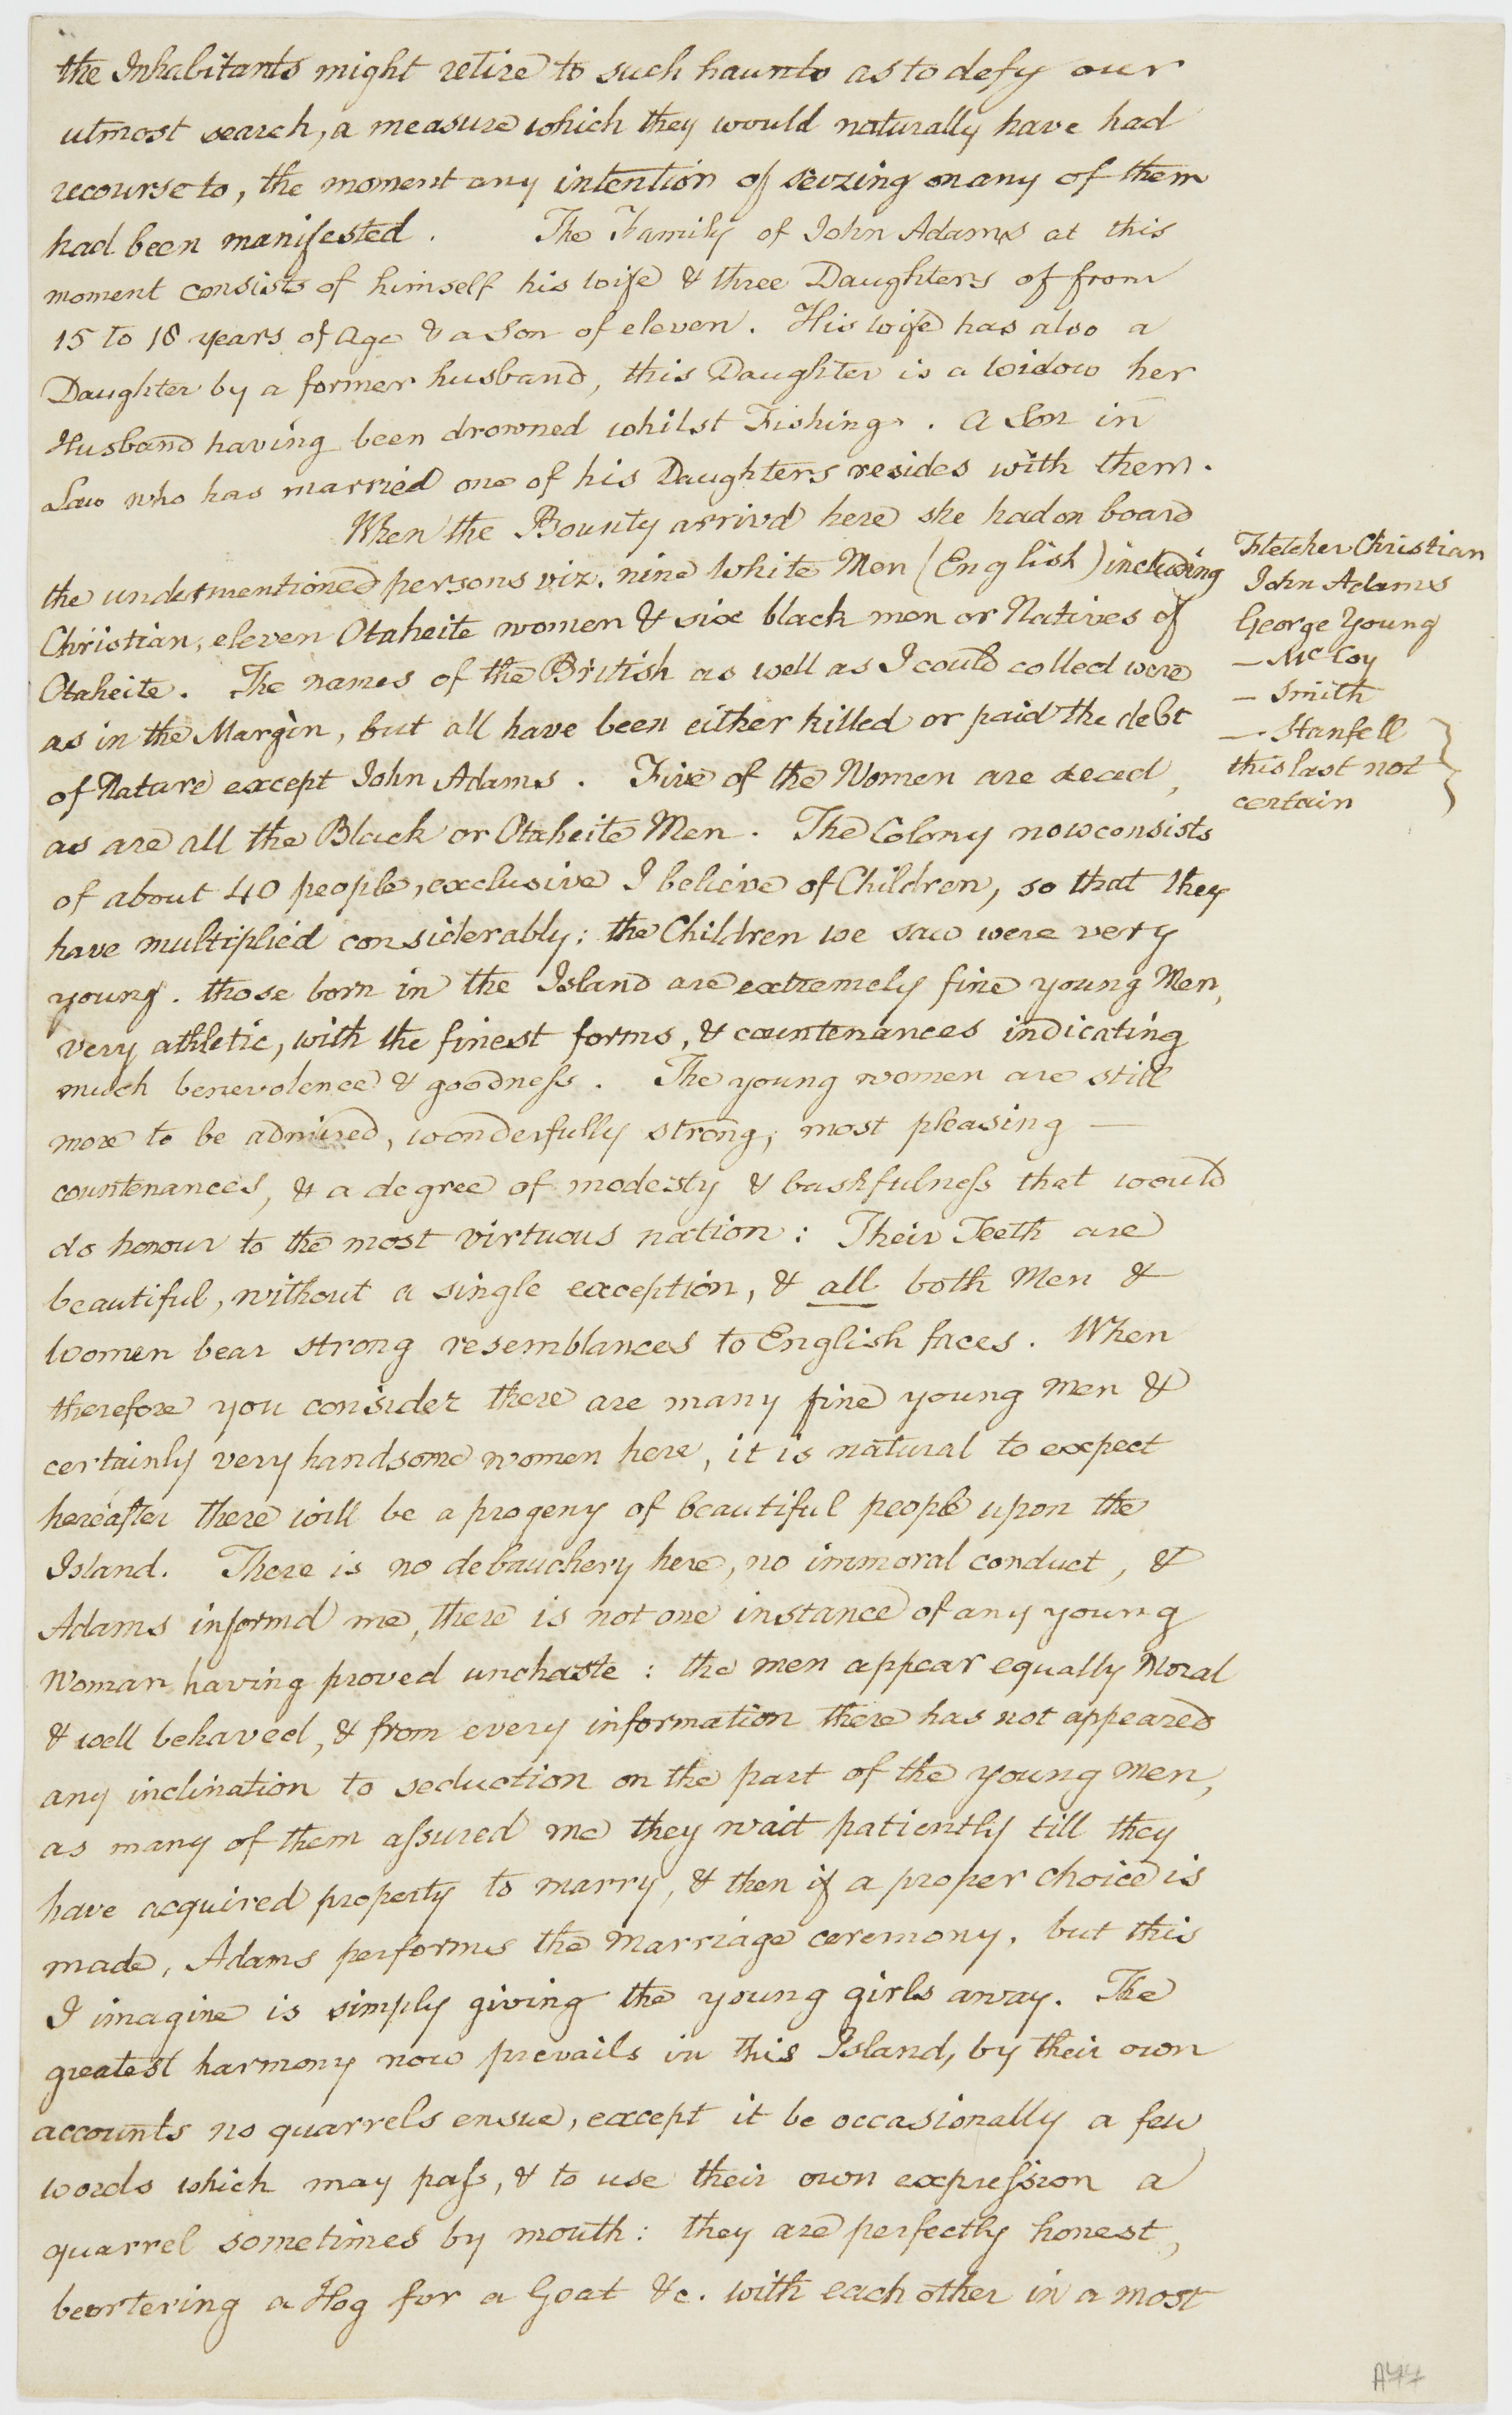 the Inhabitants might retire to such haunts as to defy our
utmost search, a measure which they would naturally have had
recourse to, the moment any intention of seizing on any of them
had been manifested. The Family of John Adams at this
moment consists of himself his wife & three Daughters of from
15 to 18 years of Age & a Son of eleven. His wife has also a
Daughter by a former husband, this Daughter is a widow her
Husband having been drowned whilst Fishing. A Son in
Law who has married one of his Daughters resides with them.
When the Bounty arriv'd here she had on board
the undermentioned persons viz. nine White Men (English) including
Christian, eleven Otaheite women & six black men or Natives of
Otaheite. The names of the British as well as I could collect were
as in the Margin, but all have been either killed or paid the debt
of Nature except John Adams. Five of the Women are deced,
as are all the Black or Otaheite Men. The Colony now consists
of about 40 people, exclusive I believe of Children, so that they
have multiplied considerably: the Children we saw were very
young. those born in the Island are extremely fine young Men,
very athletic, with the finest forms, & countenances indicating
much benevolence & goodness. The young women are still
more to be admired, wonderfully strong, most pleasing —
countenances, & a degree of modesty & bashfulness that would
do honour to the most virtuous nation: Their Teeth are
beautiful, without a single exception, & all both Men &
Women bear strong resemblances to English faces. When
therefore you consider there are many fine young men &
certainly very handsome women here, it is natural to expect
hereafter there will be a progeny of beautiful people upon the
Island. There is no debauchery here, no immoral conduct, &
Adams informd me, there is not one instance of any young
Woman having proved unchaste: the men appear equally Moral
& well behaved, & from every information there has not appeared
any inclination to seduction on the part of the young men,
as many of them assured me they wait patiently till they
have acquired property to marry, & then if a proper choice is
made, Adams performs the marriage ceremony, but this
I imagine is simply giving the young girls away. The
greatest harmony now prevails in this Island, by their own
accounts no quarrels ensue, except it be occasionally a few
words which may pass, & to use their own expression a
quarrel sometimes by mouth: they are perfectly honest,
beartering a Hog for a Goat &c. with each other in a most
Fletcher Christian
John Adams
George Young
— McCoy
— Smith
— Stanfell
this last not
certain
A77